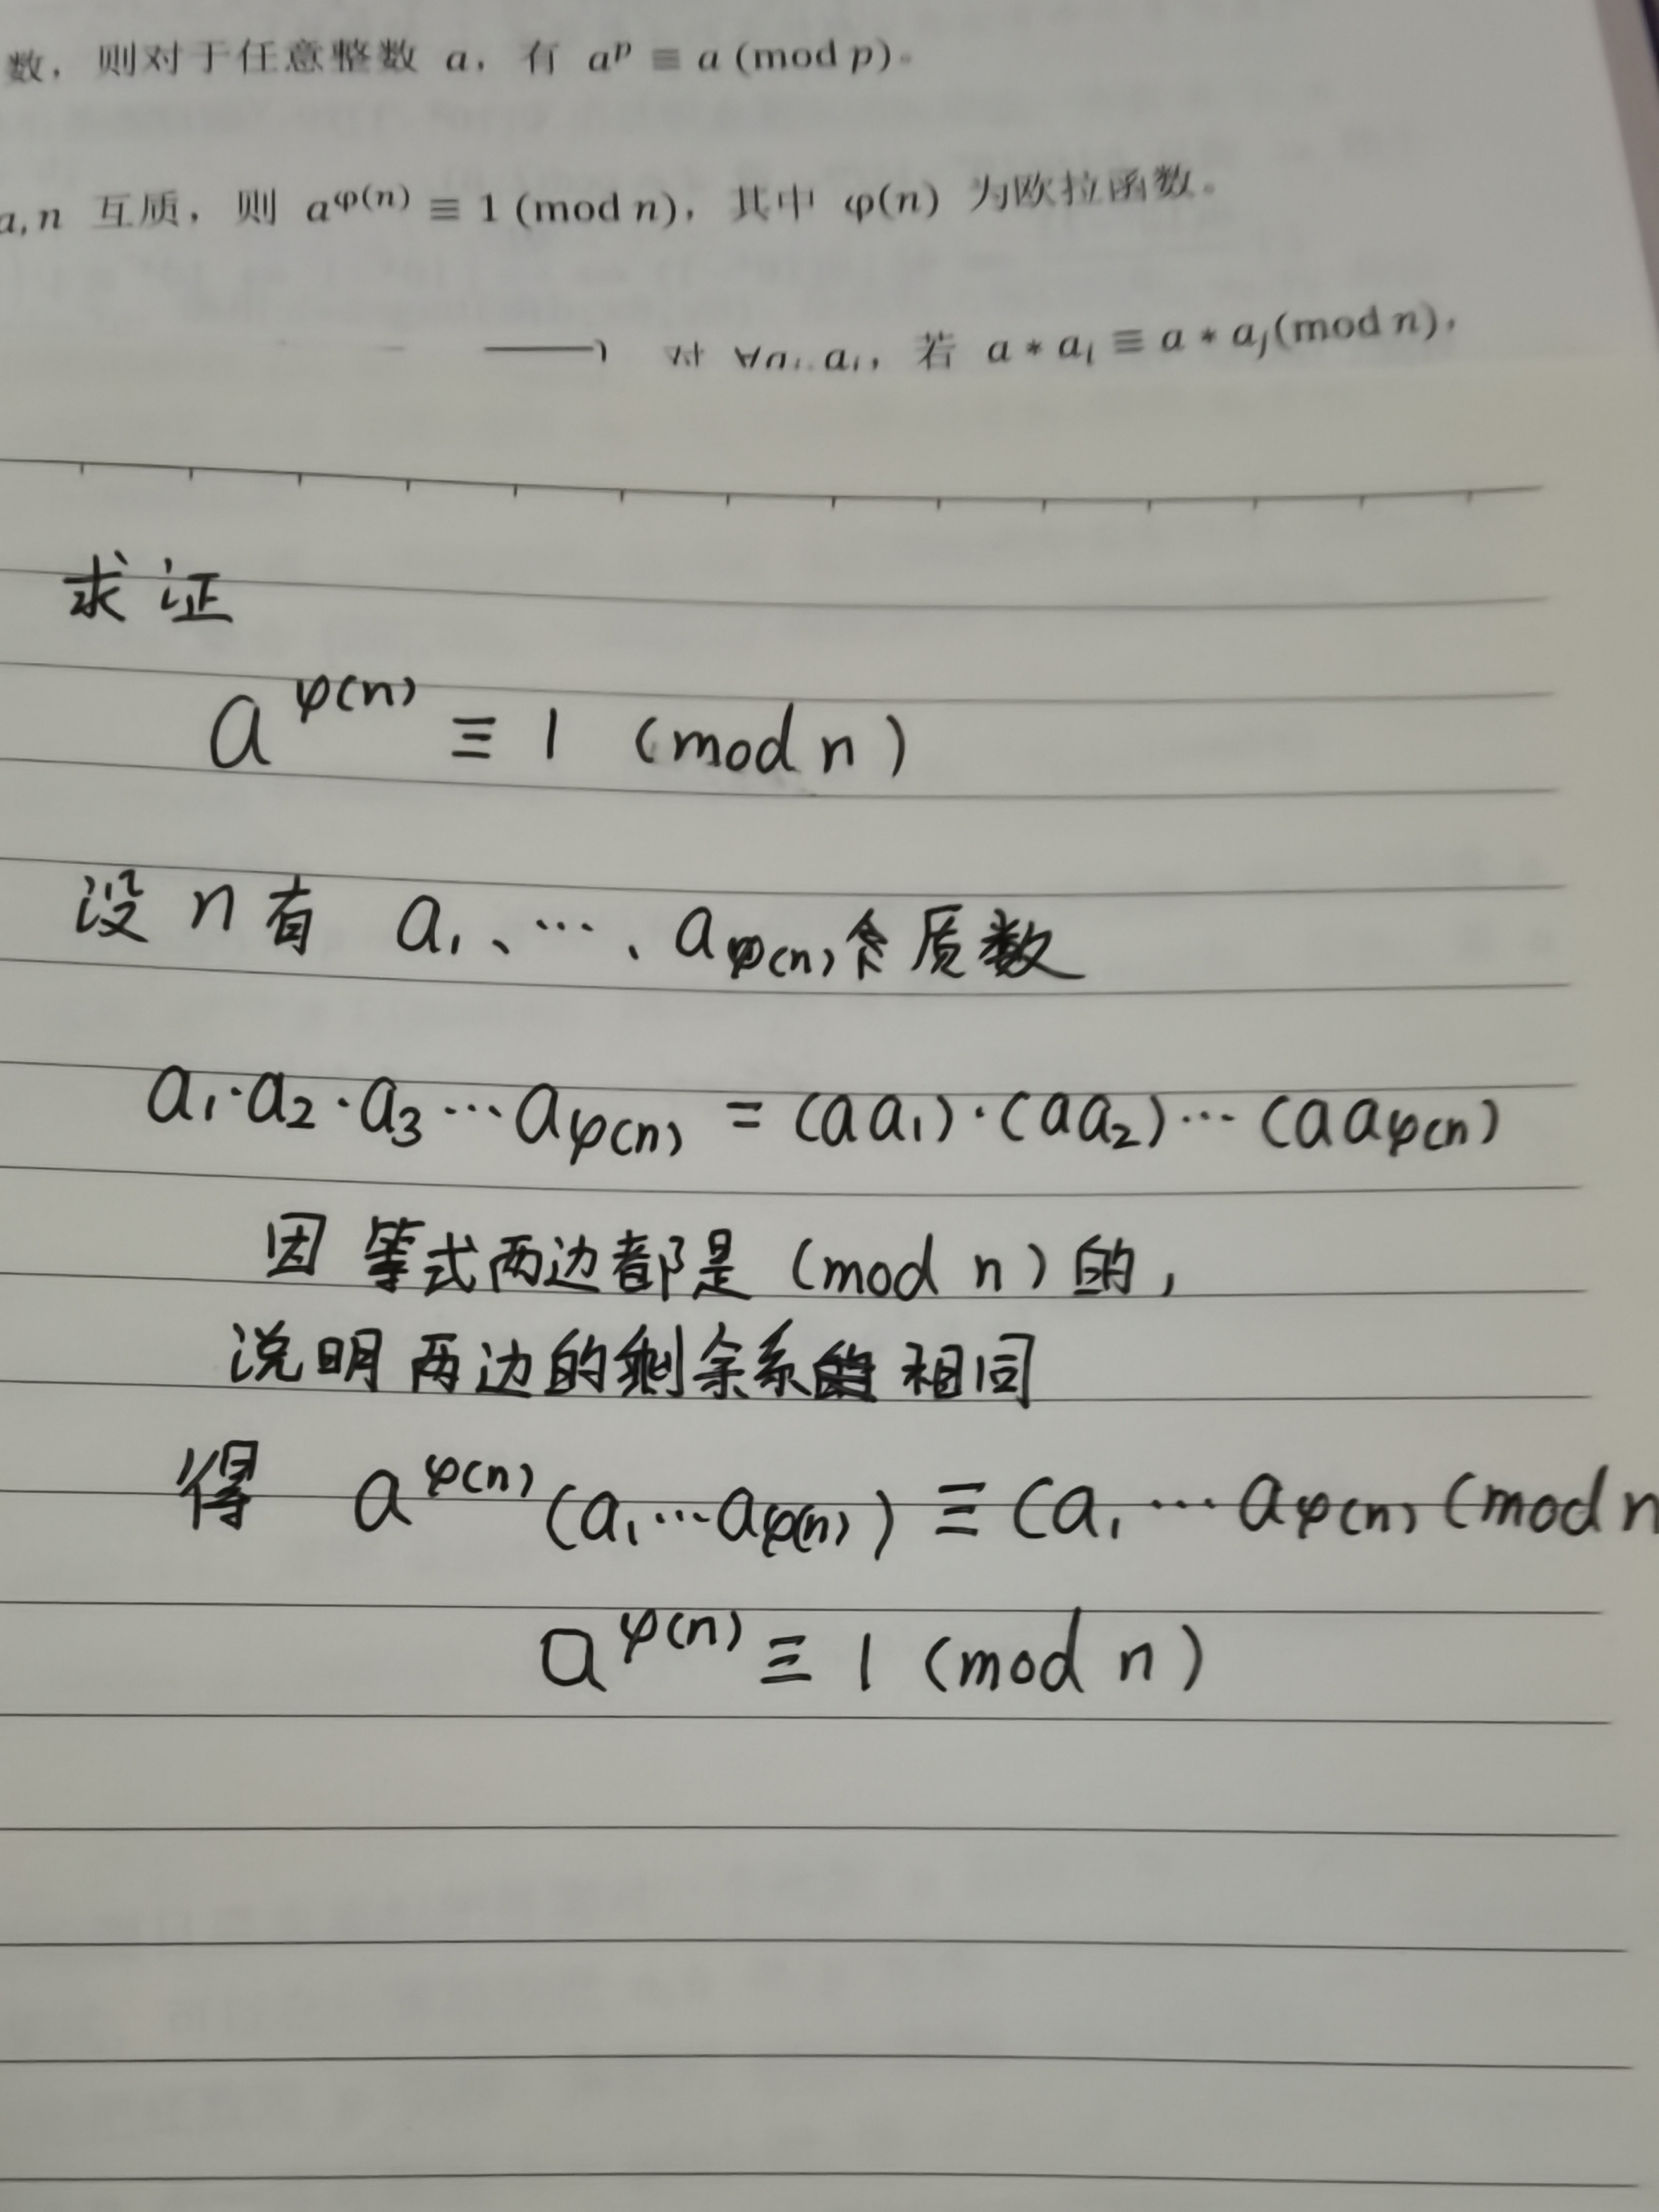 数，则对于任意整数 a，有 a^p ≡ a (mod p)。
a, n 互质，则 a^φ(n) ≡ 1 (mod n)，其中 φ(n) 为欧拉函数。
对 ∀a_i, a_j，若 a * a_i ≡ a * a_j (mod n)，
求证
a^φ(n) ≡ 1 (mod n)
设 n 有 a₁、…、a_φ(n) 质数
a₁·a₂·a₃…a_φ(n) = (aa₁)·(aa₂)…(aa_φ(n))
因 等式两边都是 (mod n) 的，
说明 两边的剩余系 相同
得 a^φ(n) (a₁…a_φ(n)) ≡ (a₁…a_φ(n) (mod n
a^φ(n) ≡ 1 (mod n)